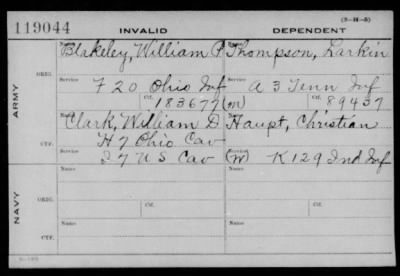 119044
(3-14-5)
INVALID DEPENDENT
Name Name
Blakeley, William P Thompson, Larkin
ARMY
ORIG.
Service Service
F 20 Ohio Inf A 3 Tenn Inf
Ctf. Ctf.
183677 (M) 89437
Name
Clark, William D Haupt, Christian
H 7 Ohio Cav
CTF.
Service
I 7 U S Cav (W) K 129 Ind Inf
NAVY
Name Name
ORIG.
Ctf. Ctf.
Name Name
CTF.